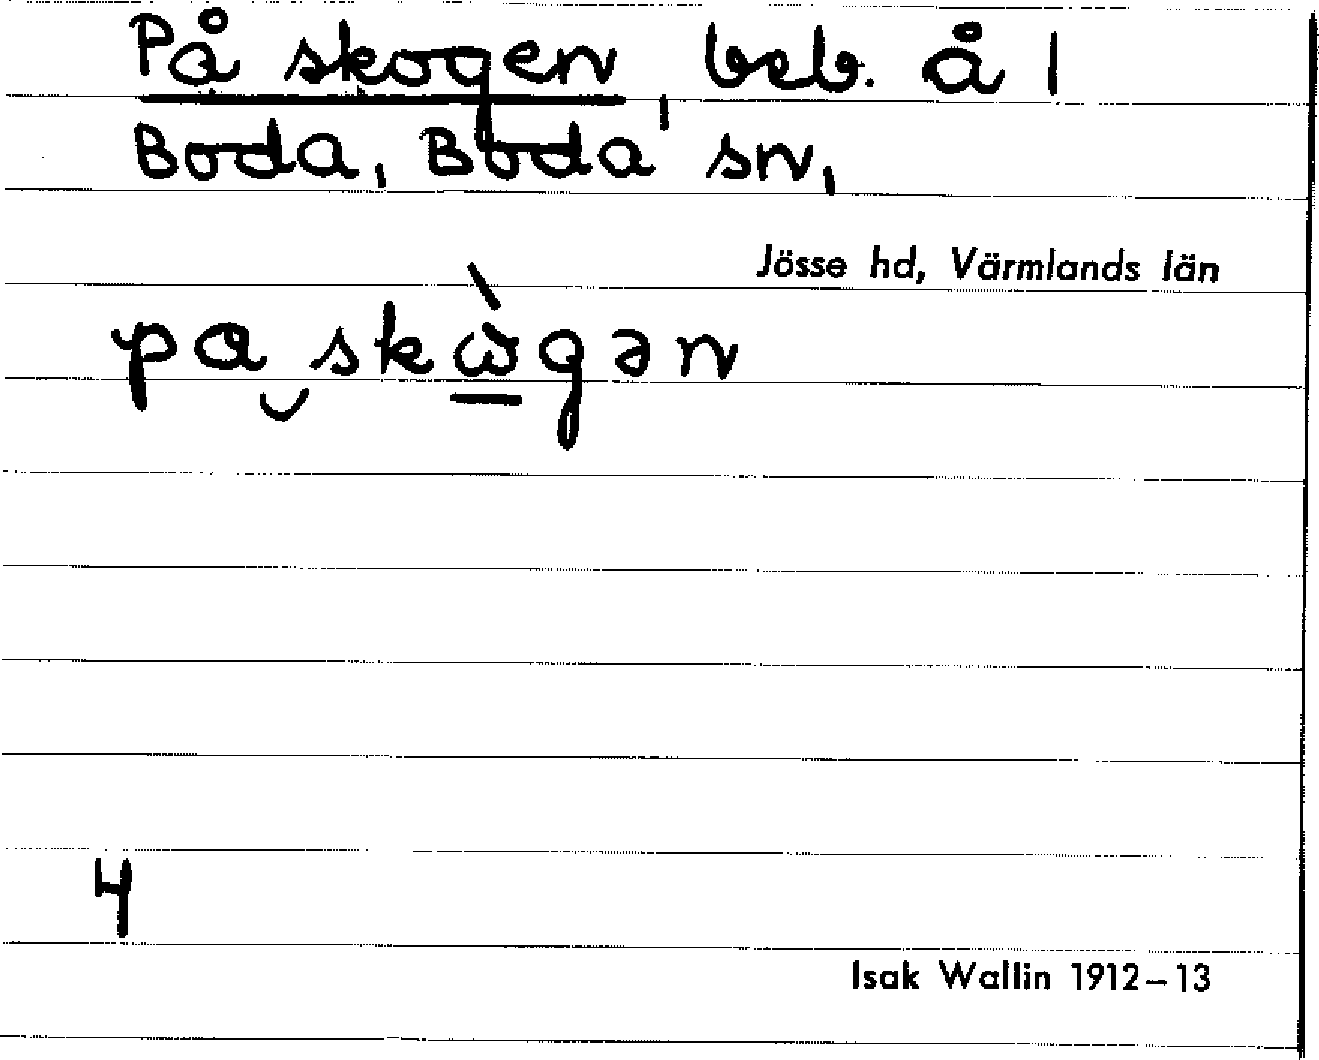 På skogen, beb. å 1
Boda, Boda sn,
Jösse hd, Värmlands län
pa‿skὼ̱gən
4
Isak Wallin 1912–13